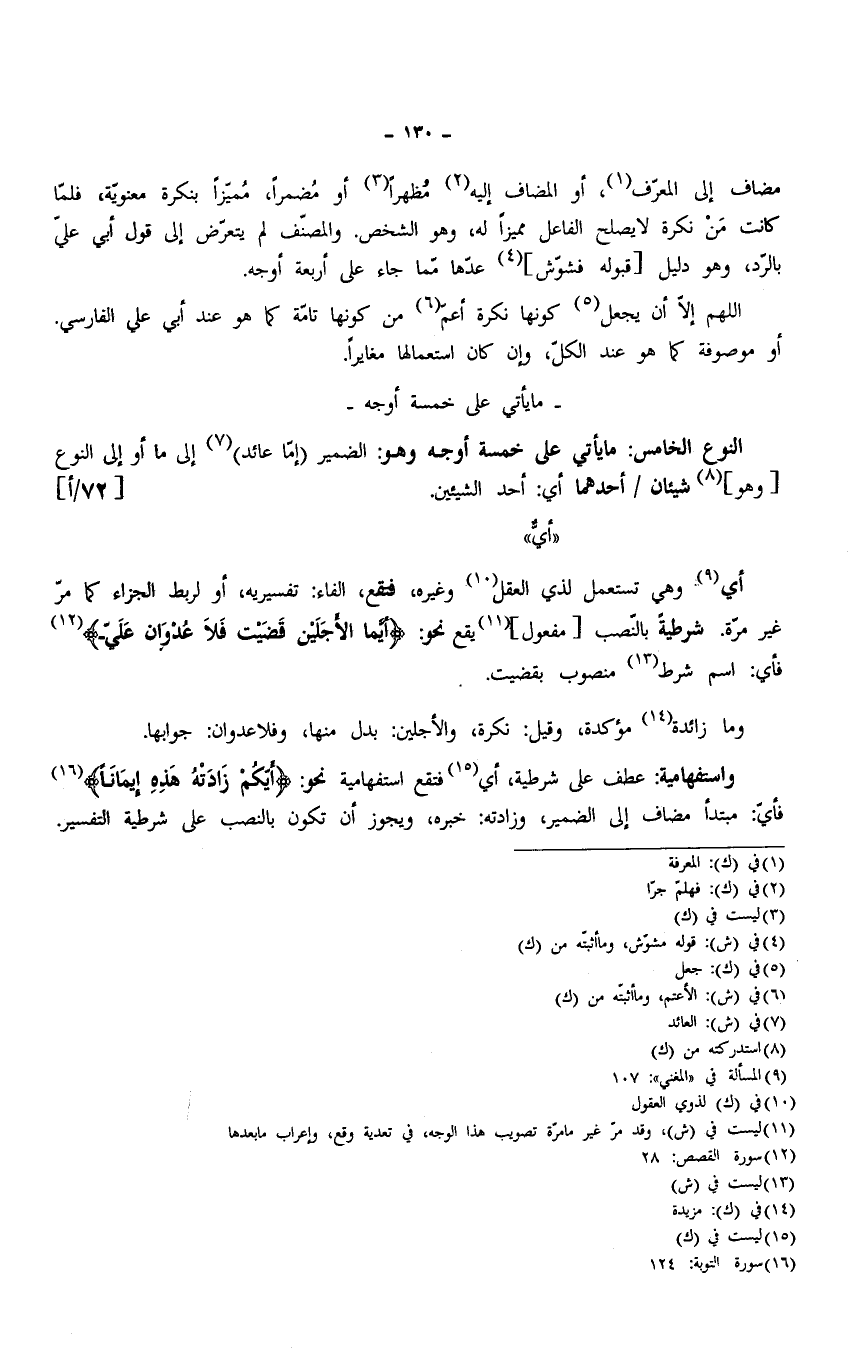 ـ ١٣٠ ـ
مضاف إلى المعرّف(١)، أو المضاف إليه(٢) مُظهراً(٣) أو مُضمراً، مُميّزاً بنكرة معنويّة، فلمّا
كانت مَنْ نكرة لايصلح الفاعل مميزاً له، وهو الشخص. والمصنّف لم يتعرّض إلى قول أبي عليّ
بالرّد، وهو دليل [قبوله فشوّش](٤) عدّها مّما جاء على أربعة أوجه.
اللهم إلاّ أن يجعل(٥) كونها نكرة أعمّ(٦) من كونها تامّة كما هو عند أبي علي الفارسي.
أو موصوفة كما هو عند الكلّ، وإن كان استعمالها مغايراً.
ـ مايأتي على خمسة أوجه ـ
النوع الخامس: مايأتي على خمسة أوجه وهو: الضمير (إمّا عائد)(٧) إلى ما أو إلى النوع
[وهو](٨) شيئان / أحدهما أي: أحد الشيئين. [٧٢/أ]
«أيٌّ»
أي(٩). وهي تستعمل لذي العقل(١٠) وغيره، فتقع، الفاء: تفسيريه، أو لربط الجزاء كما مرّ
غير مرّة. شرطيةً بالنّصب [مفعول](١١) يقع نحو: ﴿أَيّما الأَجَلَيْن قَضَيْت فَلاَ عُدْوَان عَلَيّ﴾(١٢)
فأي: اسم شرط(١٣) منصوب بقضيت.
وما زائدة(١٤) مؤكدة، وقيل: نكرة، والأجلين: بدل منها، وفلاعدوان: جوابها.
واستفهامية: عطف على شرطية، أي(١٥) فتقع استفهامية نحو: ﴿أَيّكُمْ زَادَتْهُ هَذِهِ إِيمَانَاً﴾(١٦)
فأيّ: مبتدأ مضاف إلى الضمير، وزادته: خبره، ويجوز أن تكون بالنصب على شرطية التفسير.
(١) في (ك): المعرفة
(٢) في (ك): فهلمّ جرّا
(٣) ليست في (ك)
(٤) في (ش): قوله مشوّش، وماأثبتّه من (ك)
(٥) في (ك): جعل
(٦) في (ش): الأعتم، وماأثبتّه من (ك)
(٧) في (ش): العائد
(٨) استدركته من (ك)
(٩) المسألة في «المغني»: ١٠٧
(١٠) في (ك) لذوي العقول
(١١) ليست في (ش)، وقد مرّ غير مامرّة تصويب هذا الوجه، في تعدية وقع، وإعراب مابعدها
(١٢) سورة القصص: ٢٨
(١٣) ليست في (ش)
(١٤) في (ك): مزيدة
(١٥) ليست في (ك)
(١٦) سورة التوبة: ١٢٤